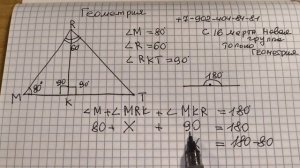 Геометрия
+7-902-404-84-81
С 16 марта новая
группа
только
Геометрия
R
60°
∠M=80°
∠R=60°
∠RKT=90°
M 80° 90 90° T
K
180°
∠M+∠MRK+∠MKR=180°
80+X+90=180
X=180-80